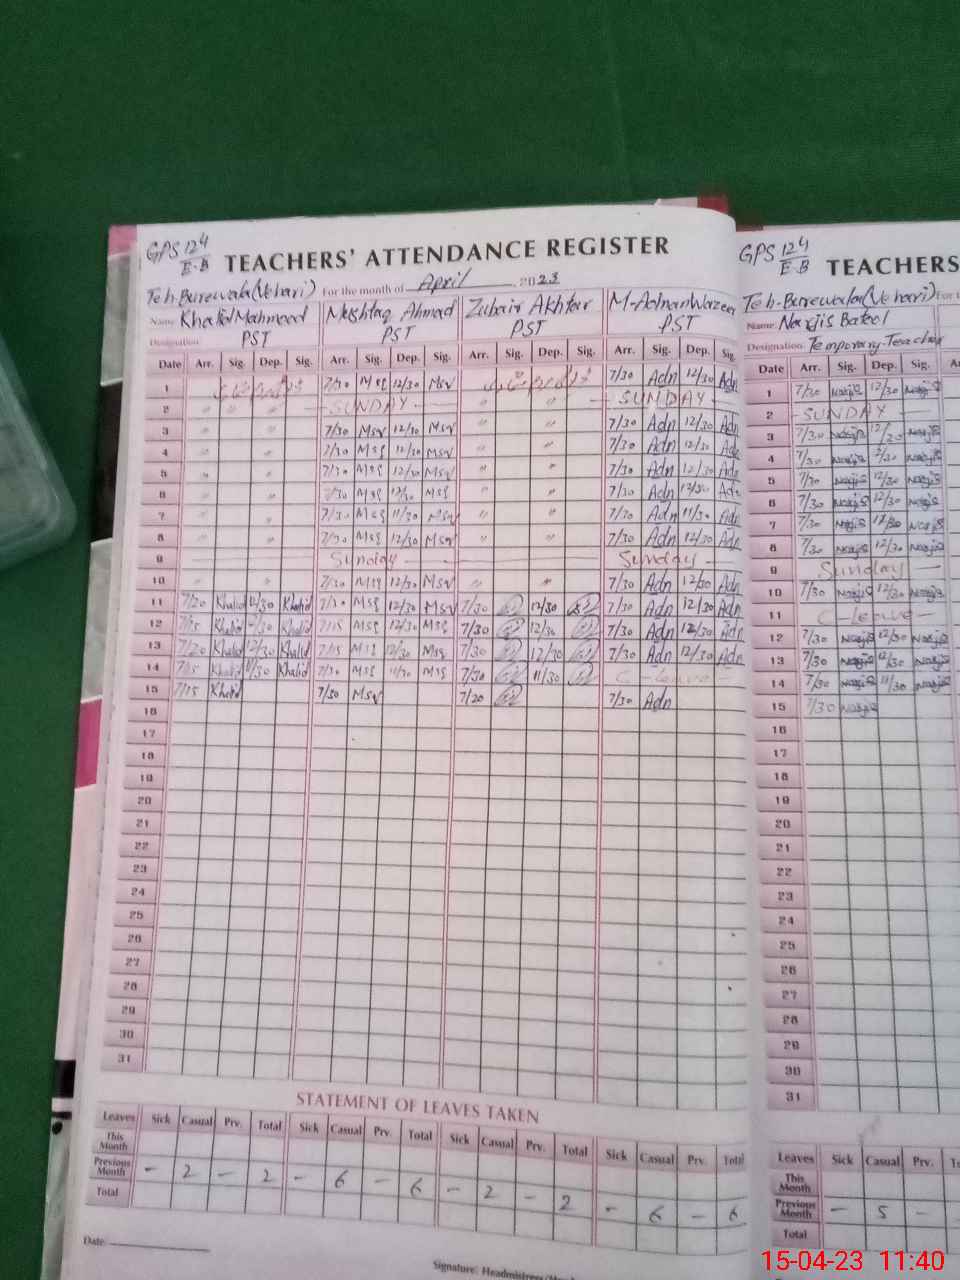 GPS 124/E-B TEACHERS' ATTENDANCE REGISTER
Teh-Burewala (Vehari) For the month of April 2023
Name Khalid Mahmood Mushtaq Ahmad Zubair Akhtar M-Adnan Wazeer
Designation PST PST PST PST
Date Arr. Sig. Dep. Sig. Arr. Sig. Dep. Sig. Arr. Sig. Dep. Sig. Arr. Sig. Dep. Sig.
1 7/30 Msq 12/30 Msq 7/30 Adn 12/30 Adn
2 " " " SUNDAY " " SUNDAY
3 " " 7/30 Msq 12/30 Msq " " 7/30 Adn 12/30 Adn
4 " " 7/30 Msq 12/30 Msq " " 7/30 Adn 12/30 Adn
5 " " 7/30 Msq 12/30 Msq " " 7/30 Adn 12/30 Adn
6 " " 7/30 Msq 12/30 Msq " " 7/30 Adn 12/30 Adn
7 " " 7/30 Msq 11/30 Msq " " 7/30 Adn 11/30 Adn
8 " " 7/30 Msq 12/30 Msq " " 7/30 Adn 12/30 Adn
9 Sunday Sunday
10 " " 7/30 Msq 12/30 Msq " " 7/30 Adn 12/30 Adn
11 7/20 Khalid 12/30 Khalid 7/30 Msq 12/30 Msq 7/30 12/30 7/30 Adn 12/30 Adn
12 7/15 Khalid Khalid 7/15 Msq 12/30 Msq 7/30 12/30 7/30 Adn 12/30 Adn
13 7/20 Khalid 12/30 Khalid 7/15 Msq 12/30 Msq 7/30 12/30 7/30 Adn 12/30 Adn
14 7/15 Khalid 11/30 Khalid 7/30 Msq 11/30 Msq 7/30 11/30 C-leave
15 7/15 Khalid 7/30 Msq 7/20 7/30 Adn
16
17
18
19
20
21
22
23
24
25
26
27
28
29
30
31
STATEMENT OF LEAVES TAKEN
Leaves Sick Casual Prv. Total Sick Casual Prv. Total Sick Casual Prv. Total Sick Casual Prv. Total
This Month
Previous Month - 2 - 2 - 6 - 6 - 2 - 2 - 6 - 6
Total
Date:
Signature: Headmistress
GPS 124/E-B TEACHERS
Teh-Burewala (Vehari) For
Name Narjis Batool
Designation Temporary-Teacher
Date Arr. Sig. Dep. Sig.
1 7/30 Narjis 12/30 Narjis
2 SUNDAY
3 7/30 Narjis 12/30 Narjis
4 7/30 Narjis 12/30 Narjis
5 7/30 Narjis 12/30 Narjis
6 7/30 Narjis 12/30 Narjis
7 7/30 Narjis Narjis
8 7/30 Narjis 12/30 Narjis
9 Sunday
10 7/30 Narjis 12/30 Narjis
11 C-leave
12 7/30 Narjis 12/30 Narjis
13 7/30 Narjis 12/30 Narjis
14 7/30 Narjis 11/30 Narjis
15 7/30 Narjis
16
17
18
19
20
21
22
23
24
25
26
27
28
29
30
31
Leaves Sick Casual Prv.
This Month
Previous Month - 5 -
Total
15-04-23 11:40